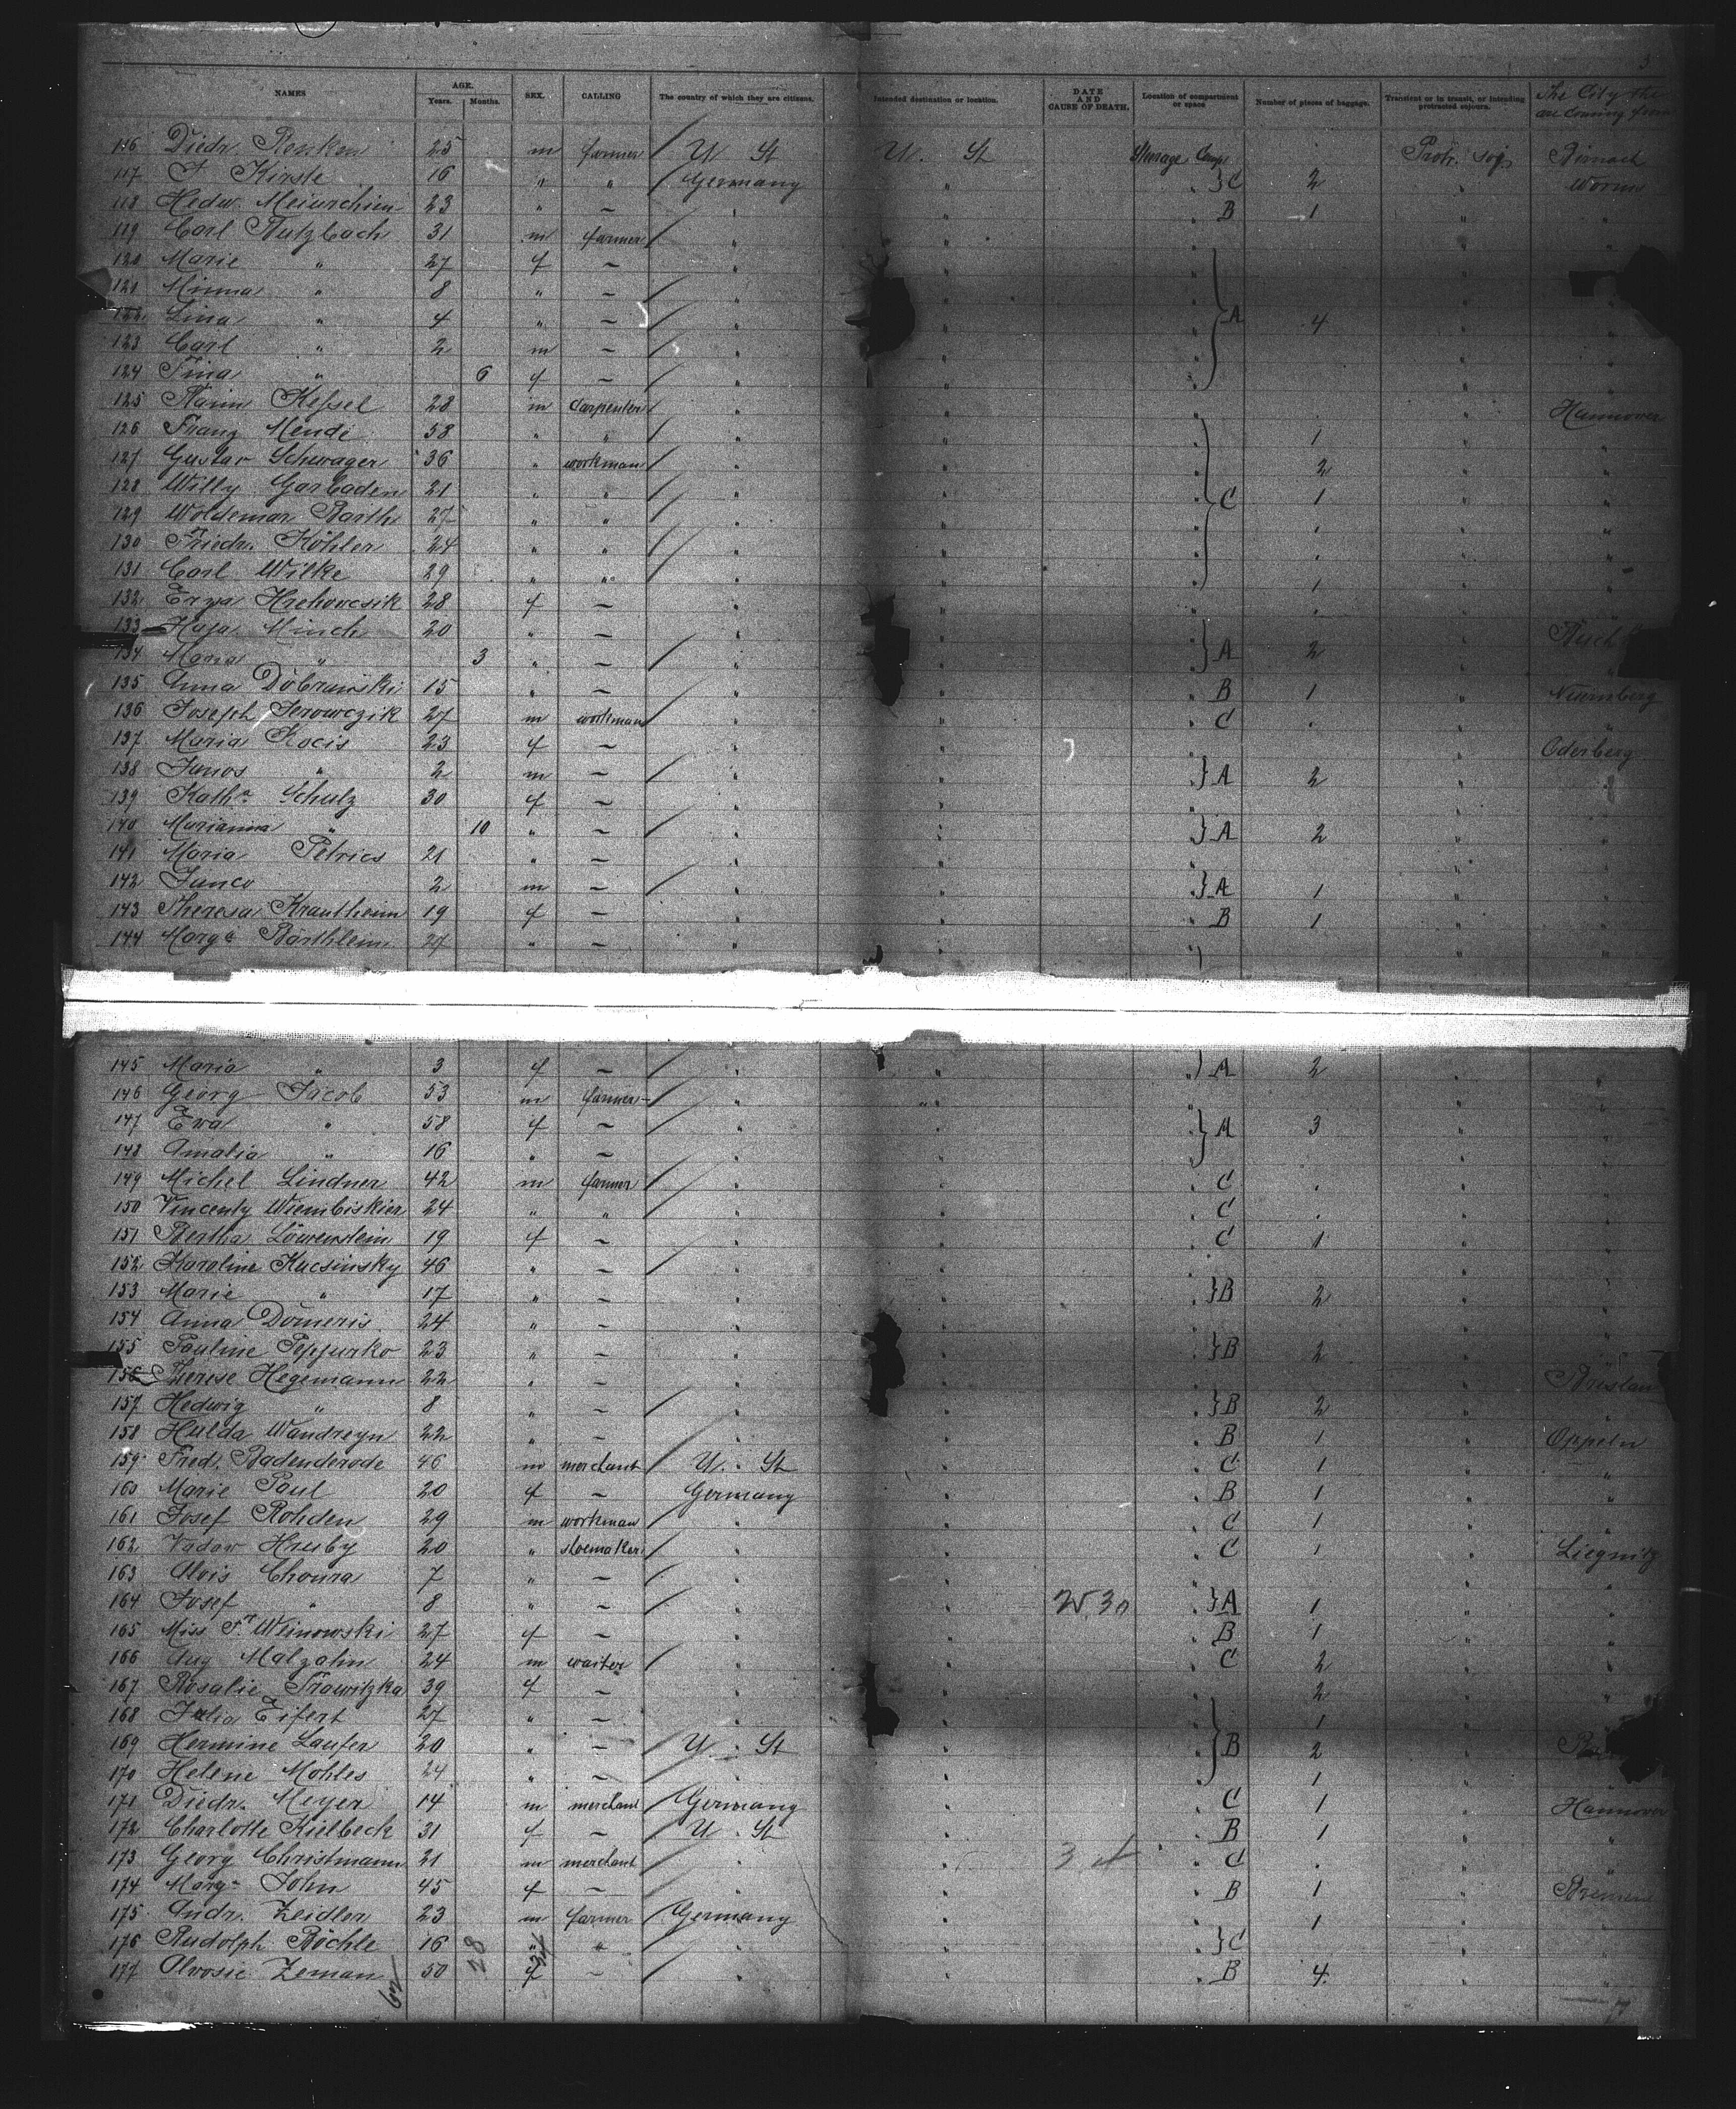 3
NAMES AGE. Years. Months. SEX. CALLING The country of which they are citizens. Intended destination or location. DATE AND CAUSE OF DEATH. Location of compartment or space Number of pieces of baggage. Transient or in transit, or intending protracted sojourn. The City the are coming from
116 Diedr. Renken 25 m farmer U St U. St Steerage Comp. Protr. soj.
117 Kirste 16 " " Germany " " } C 2 " Worms
118 Hedw. 23 " — " " " B 1 " "
119 Carl Butzbach 31 m farmer " " " " "
120 Marie " 27 f — " " " " "
121 Minna " 8 " — " " " " "
122 Lina " 4 " — " " " A 4 " "
123 Carl " 2 m — " " " " "
124 Tina " 6 f — " " " " "
125 Kessel 28 m carpenter " " " . " Hannover
126 Franz Mende 58 " " " " " 1 " "
127 Gustav Schwager 36 " workman " " " 2 " "
128 Willy Garbaden 21 " " " " " C 1 " "
129 Woldemar Barth 27 " " " " " . " "
130 Friedr. Köhler 24 " " " " " . " "
131 Carl Wilke 29 " " " " " 1 " "
132 Erza Hrehovcsik 28 f — " " " . "
133 Minch 20 " — " " "
134 Maria " 3 " — " " " } A 2 " "
135 Anna Dobrawski 15 " — " " " B 1 " Nürnberg
136 Joseph Serowczik 27 m workman " " " C . " "
137 Maria Kocis 23 f — " " " " Oderberg
138 Janos " 2 m — " " " } A 2 "
139 Kath.a Schulz 30 f — " " " " "
140 Marianna " 10 " — " " " } A 2 " "
141 Maria Petrics 21 " — " " " " "
142 Janco 2 m — " " " } A 1 " "
143 Theresa Krautheim 19 f — " " " B 1 " "
144 Marg. Barthleim 24 " — " " " " "
145 Maria " 3 f — " " " } A 2 " "
146 Georg Jacob 53 m farmer " " " " "
147 Eva " 58 f — " " " } A 3 " "
148 Amalia " 16 " — " " " " "
149 Michel Lindner 42 m farmer " " " C . " "
150 Vincenty Wiembiskier 24 " " " " " C . " "
151 Bertha Löwenstein 19 f — " " " C 1 " "
152 Karoline Kucsinsky 46 " — " " " " "
153 Marie " 17 " — " " " } B 2 " "
154 Anna Domeris 24 " — " " " " "
155 Pauline Peppurko 23 " — " " " } B 2 " "
156 Therese Hegemann 22 " — " " " "
157 Hedwig " 8 " — " " " } B 2 " "
158 Hulda Wandreyn 22 " — " " " B 1 " Oppeln
159 Fred. Badenderode 46 m merchant U. St " " C 1 " "
160 Marie Paul 20 f — Germany " " B 1 " "
161 Josef Rohden 29 m workman " " " C 1 " "
162 Hruby 20 " shoemaker " " " C 1 " Liegnitz
163 Alois Choura 7 " — " " " " "
164 Josef " 8 " — " " " } A 1 " "
165 Miss F. Weinowski 27 f — " " " B 1 " "
166 Aug Malzahn 24 m waiter " " " C 2 " "
167 Rosalie Trawitzka 39 f — " " " 2 " "
168 Julia Eifert 27 " — " " " 1 " "
169 Hermine Laufer 20 " — U. St " " B 2 "
170 Helene Mohles 24 " — " " " 1 " "
171 Diedr. Meyer 14 m merchant Germany " " C 1 " Hannover
172 Charlotte Kielbeck 31 f — U. St " " B 1 " "
173 Georg Christmann 21 m merchant " " " C . " "
174 Marg. John 45 f — " " " B 1 " Bremen
175 Andr. Zeidler 23 m farmer Germany " " 1 " "
176 Rudolph Böchle 16 " " " " " } C " "
177 Alvosie Zeman 50 f — " " " B 4 " "
62 28 34